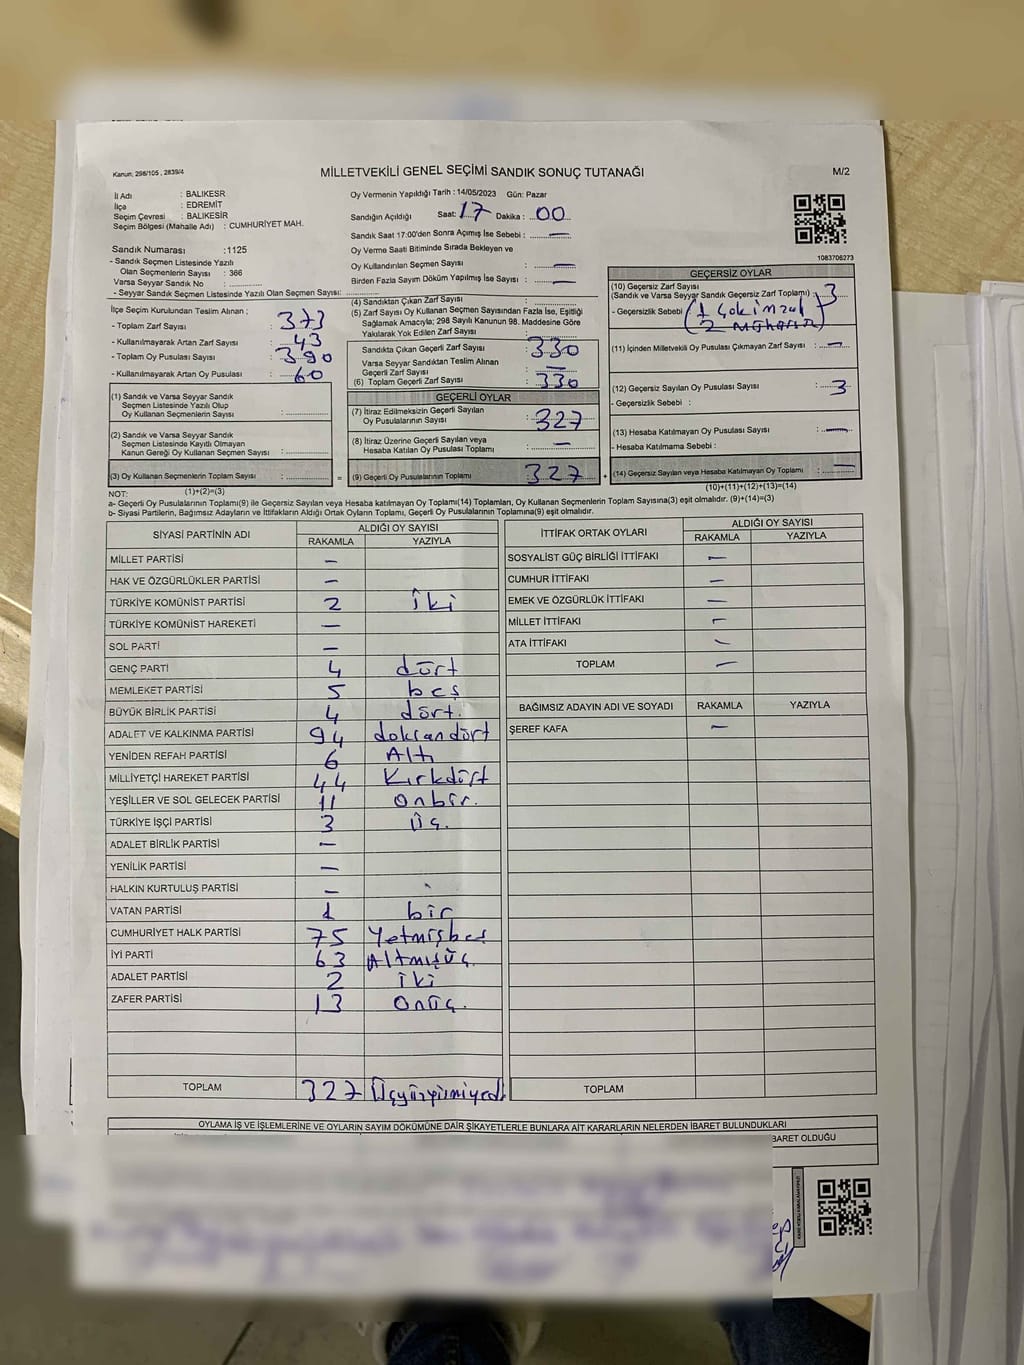 Kanun; 298/105 , 2839/4
MİLLETVEKİLİ GENEL SEÇİMİ SANDIK SONUÇ TUTANAĞI
M/2
İl Adı : BALIKESR
İlça : EDREMİT
Seçim Çevresi : BALIKESİR
Seçim Bölgesi (Mahalle Adı) : CUMHURİYET MAH.
Sandık Numarası :1125
- Sandık Seçmen Listesinde Yazılı
Olan Seçmenlerin Sayısı : 366
Varsa Seyyar Sandık No :
- Seyyar Sandık Seçmen Listesinde Yazılı Olan Seçmen Sayısı:
Oy Vermenin Yapıldığı Tarih : 14/05/2023 Gün: Pazar
Sandığın Açıldığı Saat: 17 Dakika : 00
Sandık Saat 17:00'den Sonra Açımış İse Sebebi : —
Oy Verme Saati Bitiminde Sırada Bekleyen ve
Oy Kullandırılan Seçmen Sayısı : —
Birden Fazla Sayım Döküm Yapılmış İse Sayısı : —
1083706273
İlçe Seçim Kurulundan Teslim Alınan :
- Toplam Zarf Sayısı : 373
- Kullanılmayarak Artan Zarf Sayısı : 43
- Toplam Oy Pusulası Sayısı : 390
- Kullanılmayarak Artan Oy Pusulası : 60
(1) Sandık ve Varsa Seyyar Sandık
Seçmen Listesinde Yazılı Olup
Oy Kullanan Seçmenlerin Sayısı :
(2) Sandık ve Varsa Seyyar Sandık
Seçmen Listesinde Kayıtlı Olmayan
Kanun Gereği Oy Kullanan Seçmen Sayısı :
(3) Oy Kullanan Seçmenlerin Toplam Sayısı : =
(4) Sandıktan Çıkan Zarf Sayısı :
(5) Zarf Sayısı Oy Kullanan Seçmen Sayısından Fazla İse, Eşitliği
Sağlamak Amacıyla; 298 Sayılı Kanunun 98. Maddesine Göre
Yakılarak Yok Edilen Zarf Sayısı :
Sandıkta Çıkan Geçerli Zarf Sayısı : 330
Varsa Seyyar Sandıktan Teslim Alınan
Geçerli Zarf Sayısı : —
(6) Toplam Geçerli Zarf Sayısı : 330
GEÇERLİ OYLAR
(7) İtiraz Edilmeksizin Geçerli Sayılan
Oy Pusulalarının Sayısı : 327
(8) İtiraz Üzerine Geçerli Sayılan veya
Hesaba Katılan Oy Pusulası Toplamı : —
(9) Geçerli Oy Pusulalarının Toplamı 327 +
GEÇERSİZ OYLAR
(10) Geçersiz Zarf Sayısı
(Sandık ve Varsa Seyyar Sandık Geçersiz Zarf Toplamı) : 3
- Geçersizlik Sebebi
(11) İçinden Milletvekili Oy Pusulası Çıkmayan Zarf Sayısı : —
(12) Geçersiz Sayılan Oy Pusulası Sayısı : 3
- Geçersizlik Sebebi :
(13) Hesaba Katılmayan Oy Pusulası Sayısı : —
- Hesaba Katılmama Sebebi :
(14) Geçersiz Sayılan veya Hesaba Katılmayan Oy Toplamı : —
NOT: (1)+(2)=(3)
(10)+(11)+(12)+(13)=(14)
a- Geçerli Oy Pusulaları Toplamı(9) ile Geçersiz Sayılan veya Hesaba katılmayan Oy Toplamı(14) Toplamları, Oy Kullanan Seçmenlerin Toplam Sayısına(3) eşit olmalıdır. (9)+(14)=(3)
b- Siyasi Partilerin, Bağımsız Adayların ve İttifakların Aldığı Ortak Oyların Toplamı, Geçerli Oy Pusulalarının Toplamına(9) eşit olmalıdır.
SİYASİ PARTİNİN ADI ALDIĞI OY SAYISI
RAKAMLA YAZIYLA
MİLLET PARTİSİ —
HAK VE ÖZGÜRLÜKLER PARTİSİ —
TÜRKİYE KOMÜNİST PARTİSİ 2 iki
TÜRKİYE KOMÜNİST HAREKETİ —
SOL PARTİ —
GENÇ PARTİ 4 dört
MEMLEKET PARTİSİ 5 beş
BÜYÜK BİRLİK PARTİSİ 4 dört.
ADALET VE KALKINMA PARTİSİ 94 doksandört
YENİDEN REFAH PARTİSİ 6 Altı
MİLLİYETÇİ HAREKET PARTİSİ 44 Kırkdört
YEŞİLLER VE SOL GELECEK PARTİSİ 11 onbir.
TÜRKİYE İŞÇİ PARTİSİ 3 Üç.
ADALET BİRLİK PARTİSİ —
YENİLİK PARTİSİ —
HALKIN KURTULUŞ PARTİSİ —
VATAN PARTİSİ 1 bir
CUMHURİYET HALK PARTİSİ 75 Yetmişbeş
İYİ PARTİ 63 Altmışüç.
ADALET PARTİSİ 2 iki
ZAFER PARTİSİ 13 Onüç.
TOPLAM 327 Üçyüzyirmiyedi
İTTİFAK ORTAK OYLARI ALDIĞI OY SAYISI
RAKAMLA YAZIYLA
SOSYALİST GÜÇ BİRLİĞİ İTTİFAKI —
CUMHUR İTTİFAKI —
EMEK VE ÖZGÜRLÜK İTTİFAKI —
MİLLET İTTİFAKI —
ATA İTTİFAKI —
TOPLAM —
BAĞIMSIZ ADAYIN ADI VE SOYADI RAKAMLA YAZIYLA
ŞEREF KAFA —
TOPLAM
OYLAMA İŞ VE İŞLEMLERİNE VE OYLARIN SAYIM DÖKÜMÜNE DAİR ŞİKAYETLERLE BUNLARA AİT KARARLARIN NELERDEN İBARET BULUNDUKLARI
BARET OLDUĞU